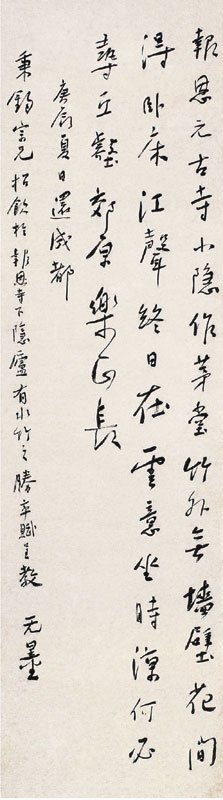 報恩元古寺小隱作茅堂竹外無墻壁花間
得臥床江聲終日在雲意坐時深何必
尋丘壑郊原樂正長
庚辰夏日還成都
秉鈞宗兄招飲於報恩寺下隱廬有水竹之勝率賦呈教 无量